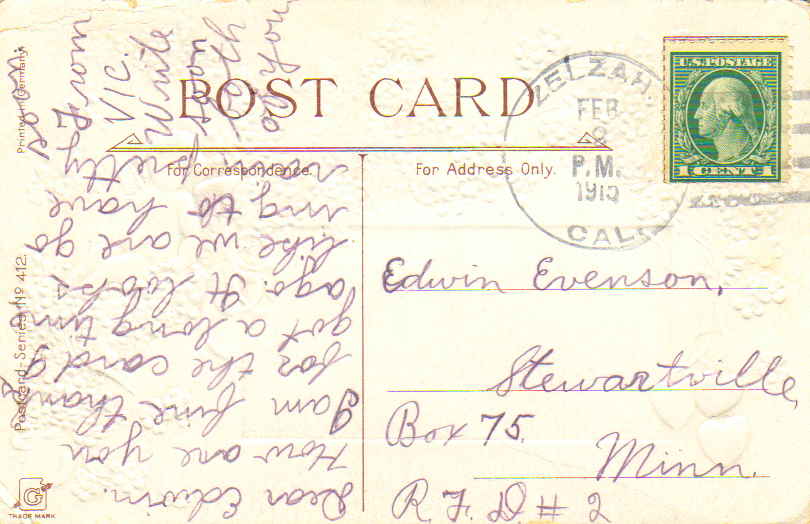 POST CARD
For Correspondence.
For Address Only.
Printed in Germany.
Postcard-Series No 412.
G
TRADE MARK
ZELZAH,
FEB
P.M.
CAL.
U.S. POSTAGE
1 CENT 1
Edwin Evenson,
Stewartville,
Box 75.
Minn.
R.F.D # 2
Dear Edwin.
How are you
I am fine thanks
for the card I
got a long tim
ago. It looks
like we are go
ing to have
rain pretty
soon.
From
VIC.
Write
soon
both
of you